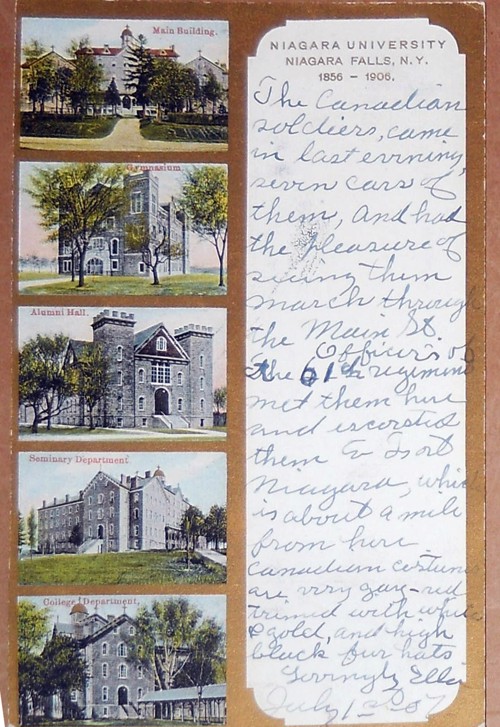 Main Building.
Gymnasium
Alumni Hall.
Seminary Department
College Department,
NIAGARA UNIVERSITY
NIAGARA FALLS, N.Y.
1856 - 1906.
The Canadian
soldiers, came
in last evening,
seven cars of
them, and had
the pleasure of
seeing them
march through
the Main St.
Officer's of
the 61st regiment
met them here
and escorted
them to Fort
Niagara, which
is about a mile
from here
Canadian costum
are very gay-red
trimed with white
& gold, and high
black fur hats
Lovingly Ellis
July 1st 07